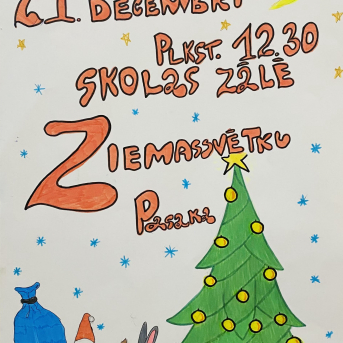 21. DECEMBRĪ
PLKST. 12.30
SKOLAS ZĀLĒ
ZIEMASSVĒTKU
PASAKA